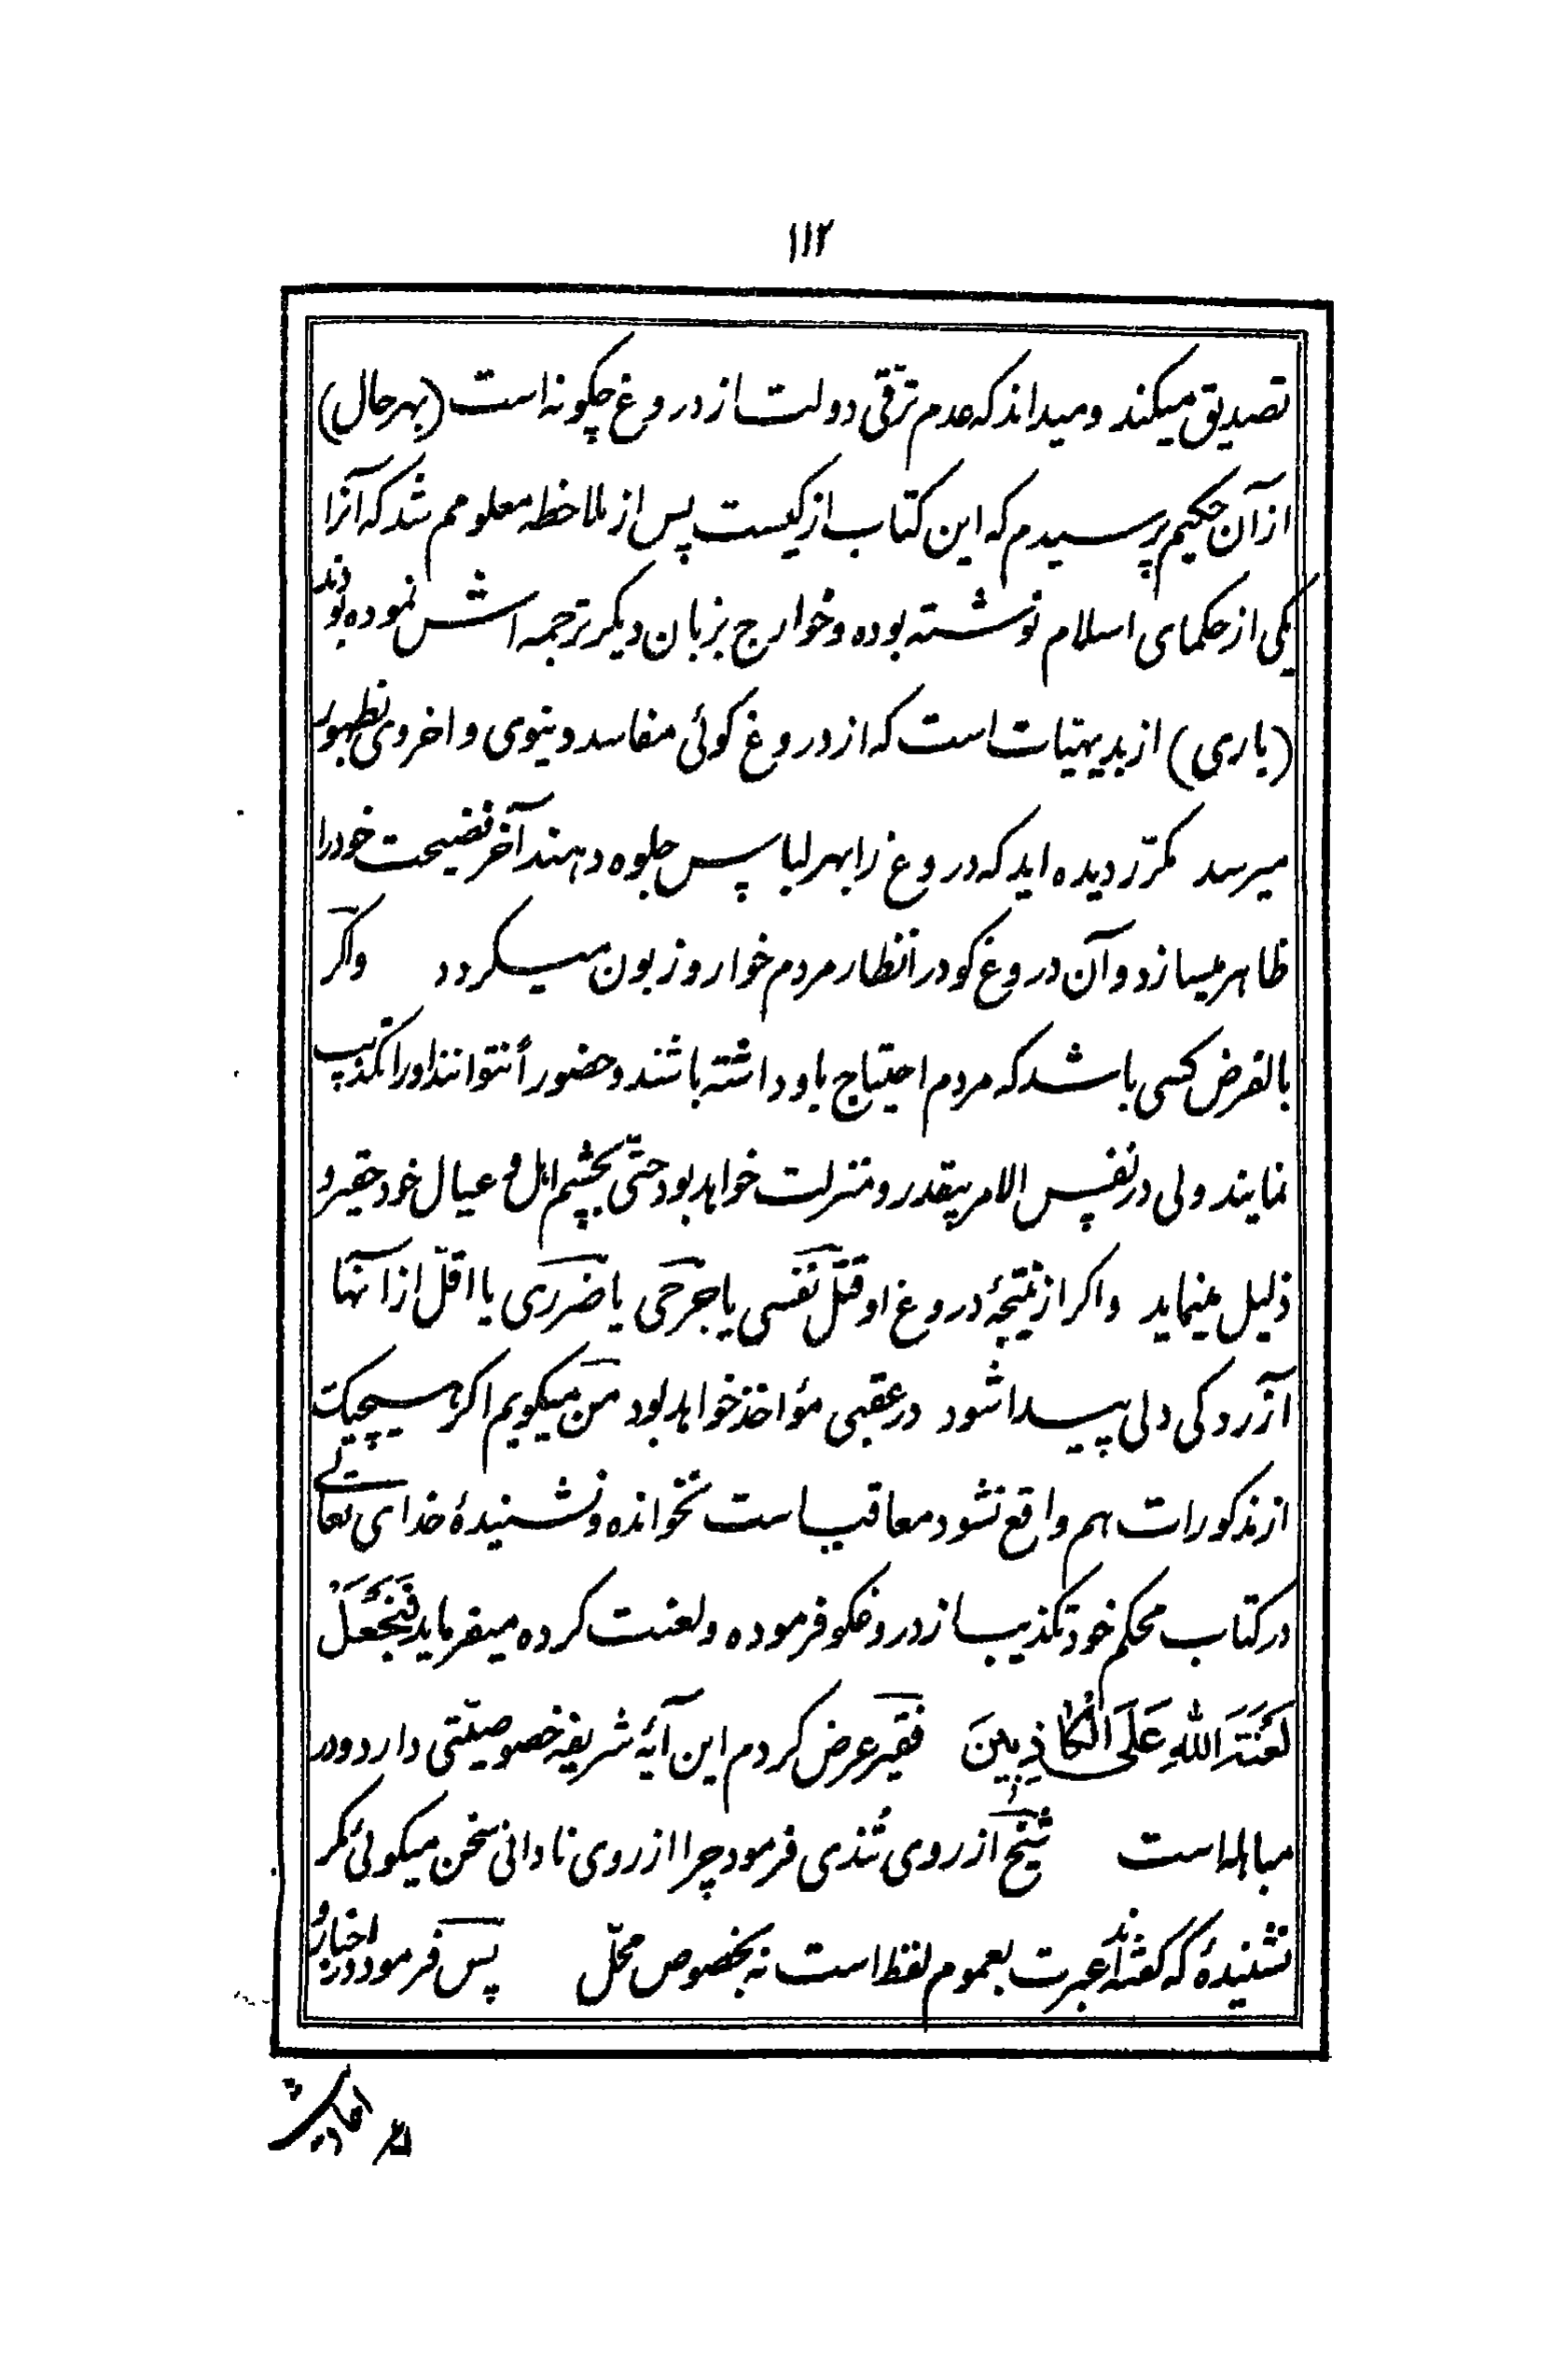 ۱۱۲
تصدیق میکند ومیداند که عدم ترقّی دولت از دروغ چکونه است (بهر حال)
از آن حکیم پرسیدم که این کتاب از کیست پس از ملاحظه معلومم شد که آنرا
یکی از حکمای اسلام نوشته بوده وخوارج بزبان دیکر ترجمه اش نموده بودند
(باری) از بدیهیّات است که از دروغ کوئی مفاسد دینوی و اخروی بظهور
میرسد مکرّر دیده اید که دروغ را بهر لباس جلوه دهند آخر فضیحت خود را
ظاهر میسازد و آن دروغ کو در انظار مردم خوار و زبون میکردد واکر
بالفرض کسی باشد که مردم احتیاج باو داشته باشند وحضوراً نتوانند او را تکذیب
نمایند ولی در نفس الامر بیقدر و منزلت خواهد بود حتّی بچشم اهل و عیال خود حقیر و
ذلیل مینماید واکر از نتیجۀ دروغ او قتل نفسی یا جرحی یا ضرری یا اقلّ از آنها
آزردکی دلی پیدا شود در عقبی مؤاخذ خواهد بود من میکویم اکر هیچیک
از مذکورات هم واقع نشود معاقب است نخوانده ونشنیدۀ خدای تعالی
در کتاب محکم خود تکذیب از دروغکو فرموده ولعنت کرده میفرماید فَنَجْعَلْ
لَعْنَتَ اللهِ عَلَی الْکاذِبینَ فقیر عرض کردم این آیۀ شریفه خصوصیّتی دارد ودر
مباهله است شیخ از روی تُندی فرمود چرا از روی نادانی سخن میکوئی مکر
نشنیدۀ که کفته‌اند عبرت بعموم لفظ است نه بخصوص محلّ پس فرمود در اخبار و